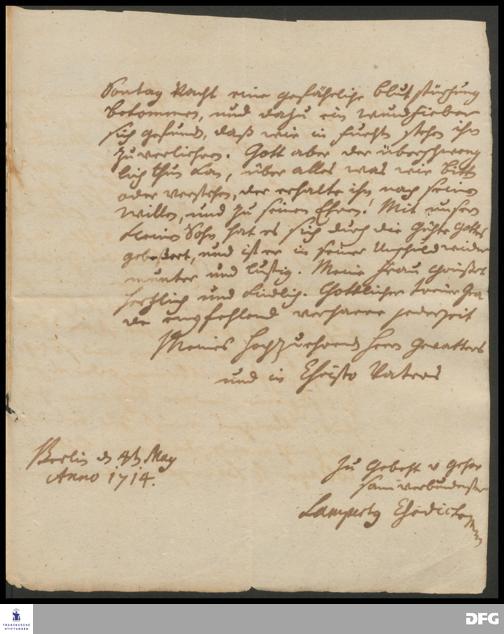 Sontag Nacht eine gefährliche blut stürtzung
bekommen, und dazu ein wundfieber
sich gefund, daß wir in furcht stehn ihn
zu verliehren. Gott aber der überschweng
lich thun kan, über alles was wir bitt
oder verstehen, der erhalte ihn nach seinem
willen, und zu seinen Ehren! Mit unserm
kleinen Sohn hat es sich durch die Gühte Gottes
gebeßert, und ist er in seiner Unschuld wieder
munter und lustig. Meine Frau grüßet
hertzlich und kindlich. Göttlicher treue Gna
de empfehlend verharre jederzeit
Meines Hochzuehrend Herrn Gevatters
und in Christo Vaters
Berlin d May
Anno 1714.
zu Gebeht u Gehor
sam verbundenster
Lampertg
FRANCKESCHE
STIFTUNGEN
DFG